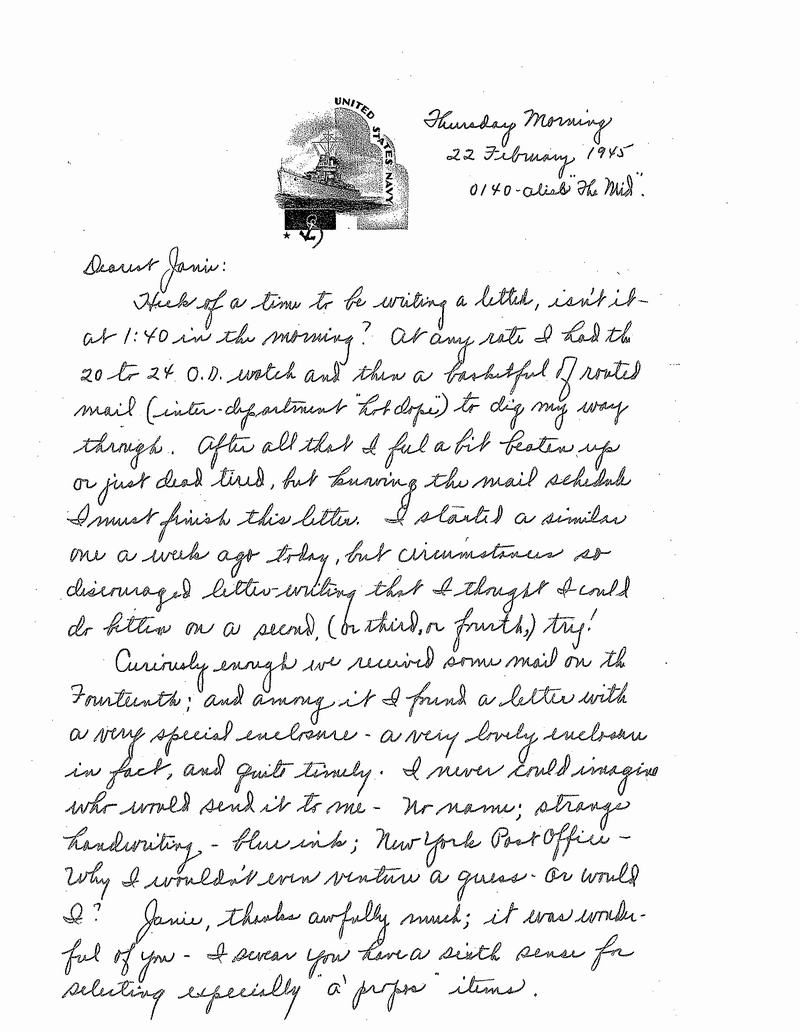 UNITED STATES NAVY
Thursday Morning
22 February, 1945
0140 - alias "The Mid".
Dearest Janie:
Heck of a time to be writing a letter, isn't it -
at 1:40 in the morning? At any rate I had the
20 to 24 O.D. watch and then a basketful of routed
mail (inter-department "hot dope") to dig my way
through. After all that I feel a bit beaten up
or just dead tired, but knowing the mail schedule
I must finish this letter. I started a similar
one a week ago today, but circumstances so
discouraged letter-writing that I thought I could
do better on a second, (or third, or fourth,) try!
Curiously enough we received some mail on the
Fourteenth; and among it I found a letter with
a very special enclosure - a very lovely enclosure
in fact, and quite timely. I never could imagine
who would send it to me - No name; strange
handwriting, - blue ink; New York Post Office -
Why I wouldn't even venture a guess - or would
I? Janie, thanks awfully much; it was wonder-
ful of you - I swear you have a sixth sense for
selecting especially "a' propos" items.